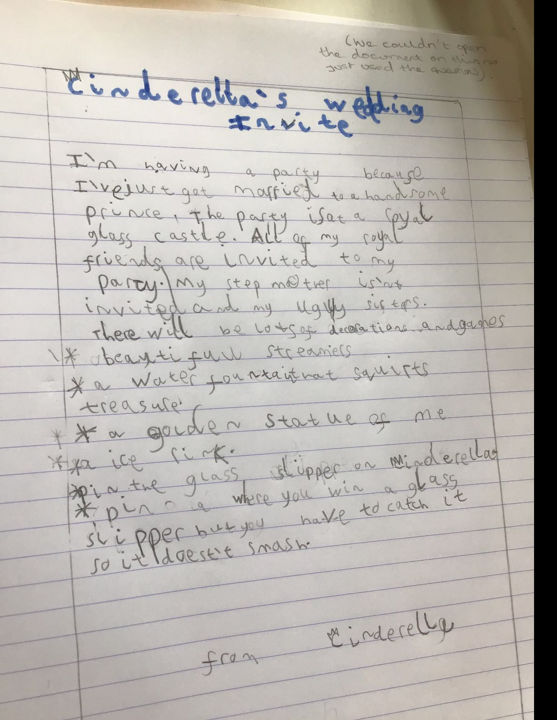 (We couldn't open
the document on
just used the
Cinderella's wedding
Invite
I'm having a party because
I've just got married to a handsome
prince, The party is at a royal
glass castle. All of my royal
friends are invited to my
party. My step mother isint
invited and my uguly sisters.
There will be lots of decorations and games
* beautifull streamers
* a water fountain that squirts
treasure
* a golden statue of me
* a ice rink.
* pin the glass slipper on Cinderella
* pin a where you win a glass
slipper but you have to catch it
so it doest't smash.
from Cinderella